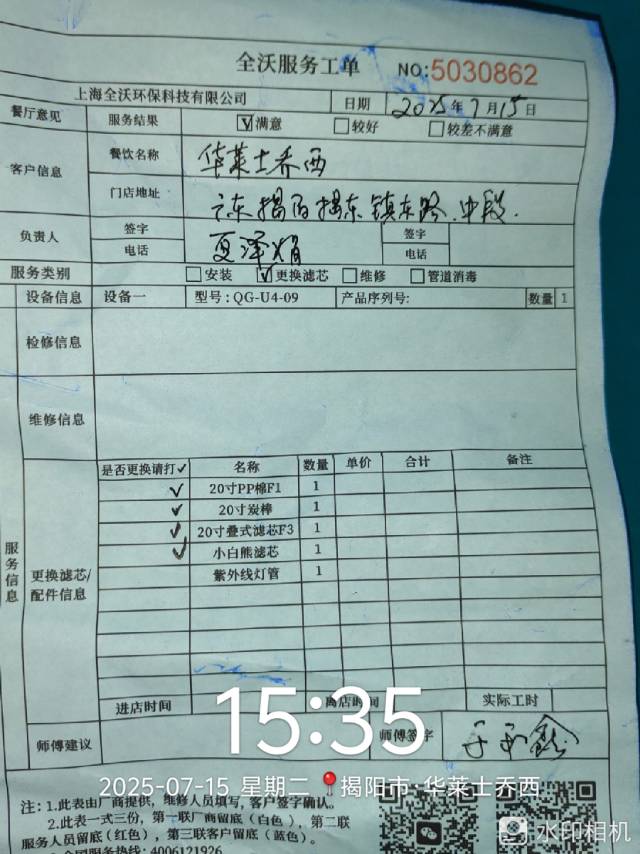 全沃服务工单 NO:5030862
上海全沃环保科技有限公司 日期 2025年7月15日
餐厅意见 服务结果 ☑满意 □较好 □较差不满意
客户信息 餐饮名称 华莱士乔西
门店地址 广东揭阳揭东镇东路中段.
负责人 签字 夏泽娟 签字
电话 电话
服务类别 □安装 ☑更换滤芯 □维修 □管道消毒
设备信息 设备一 型号:QG-U4-09 产品序列号: 数量 1
检修信息
维修信息
服务信息
更换滤芯/配件信息
是否更换请打✓ 名称 数量 单价 合计 备注
✓ 20寸PP棉F1 1
✓ 20寸炭棒 1
✓ 20寸叠式滤芯F3 1
✓ 小白熊滤芯 1
紫外线灯管 1
进店时间 离店时间 实际工时
师傅建议 师傅签字
15:35
2025-07-15 星期二 揭阳市·华莱士乔西
注:1.此表由厂商提供,维修人员填写,客户签字确认。
2.此表一式三份,第一联厂商留底(白色),第二联
服务人员留底(红色),第三联客户留底(蓝色)。
全国服务热线:4006121926
水印相机